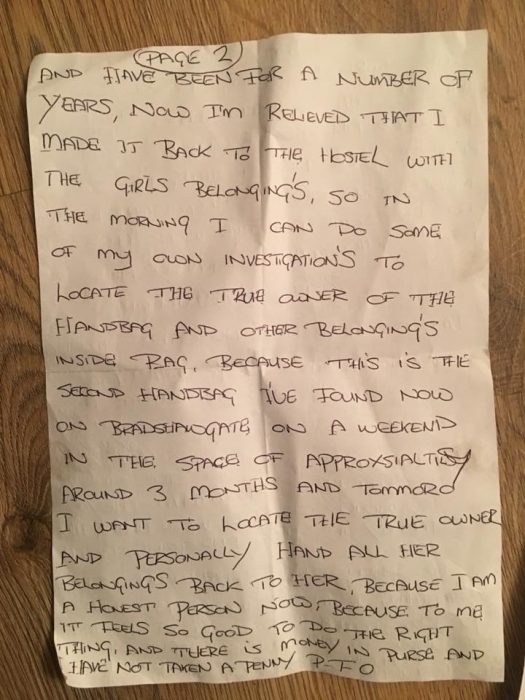 PAGE 2
AND HAVE BEEN FOR A NUMBER OF
YEARS, NOW I'M RELIEVED THAT I
MADE IT BACK TO THE HOSTEL WITH
THE GIRLS BELONGING'S, SO IN
THE MORNING I CAN DO SOME
OF MY OWN INVESTIGATION'S TO
LOCATE THE TRUE OWNER OF THE
HANDBAG AND OTHER BELONGING'S
INSIDE BAG, BECAUSE THIS IS THE
SECOND HANDBAG I'VE FOUND NOW
ON BRADSHAWGATE ON A WEEKEND
IN THE SPACE OF
AROUND 3 MONTHS AND TOMMORO
I WANT TO LOCATE THE TRUE OWNER
AND PERSONALLY HAND ALL HER
BELONGINGS BACK TO HER, BECAUSE I AM
A HONEST PERSON NOW, BECAUSE TO ME
IT FEELS SO GOOD TO DO THE RIGHT
THING, AND THERE IS MONEY IN PURSE AND
HAVE NOT TAKEN A PENNY P-T-O